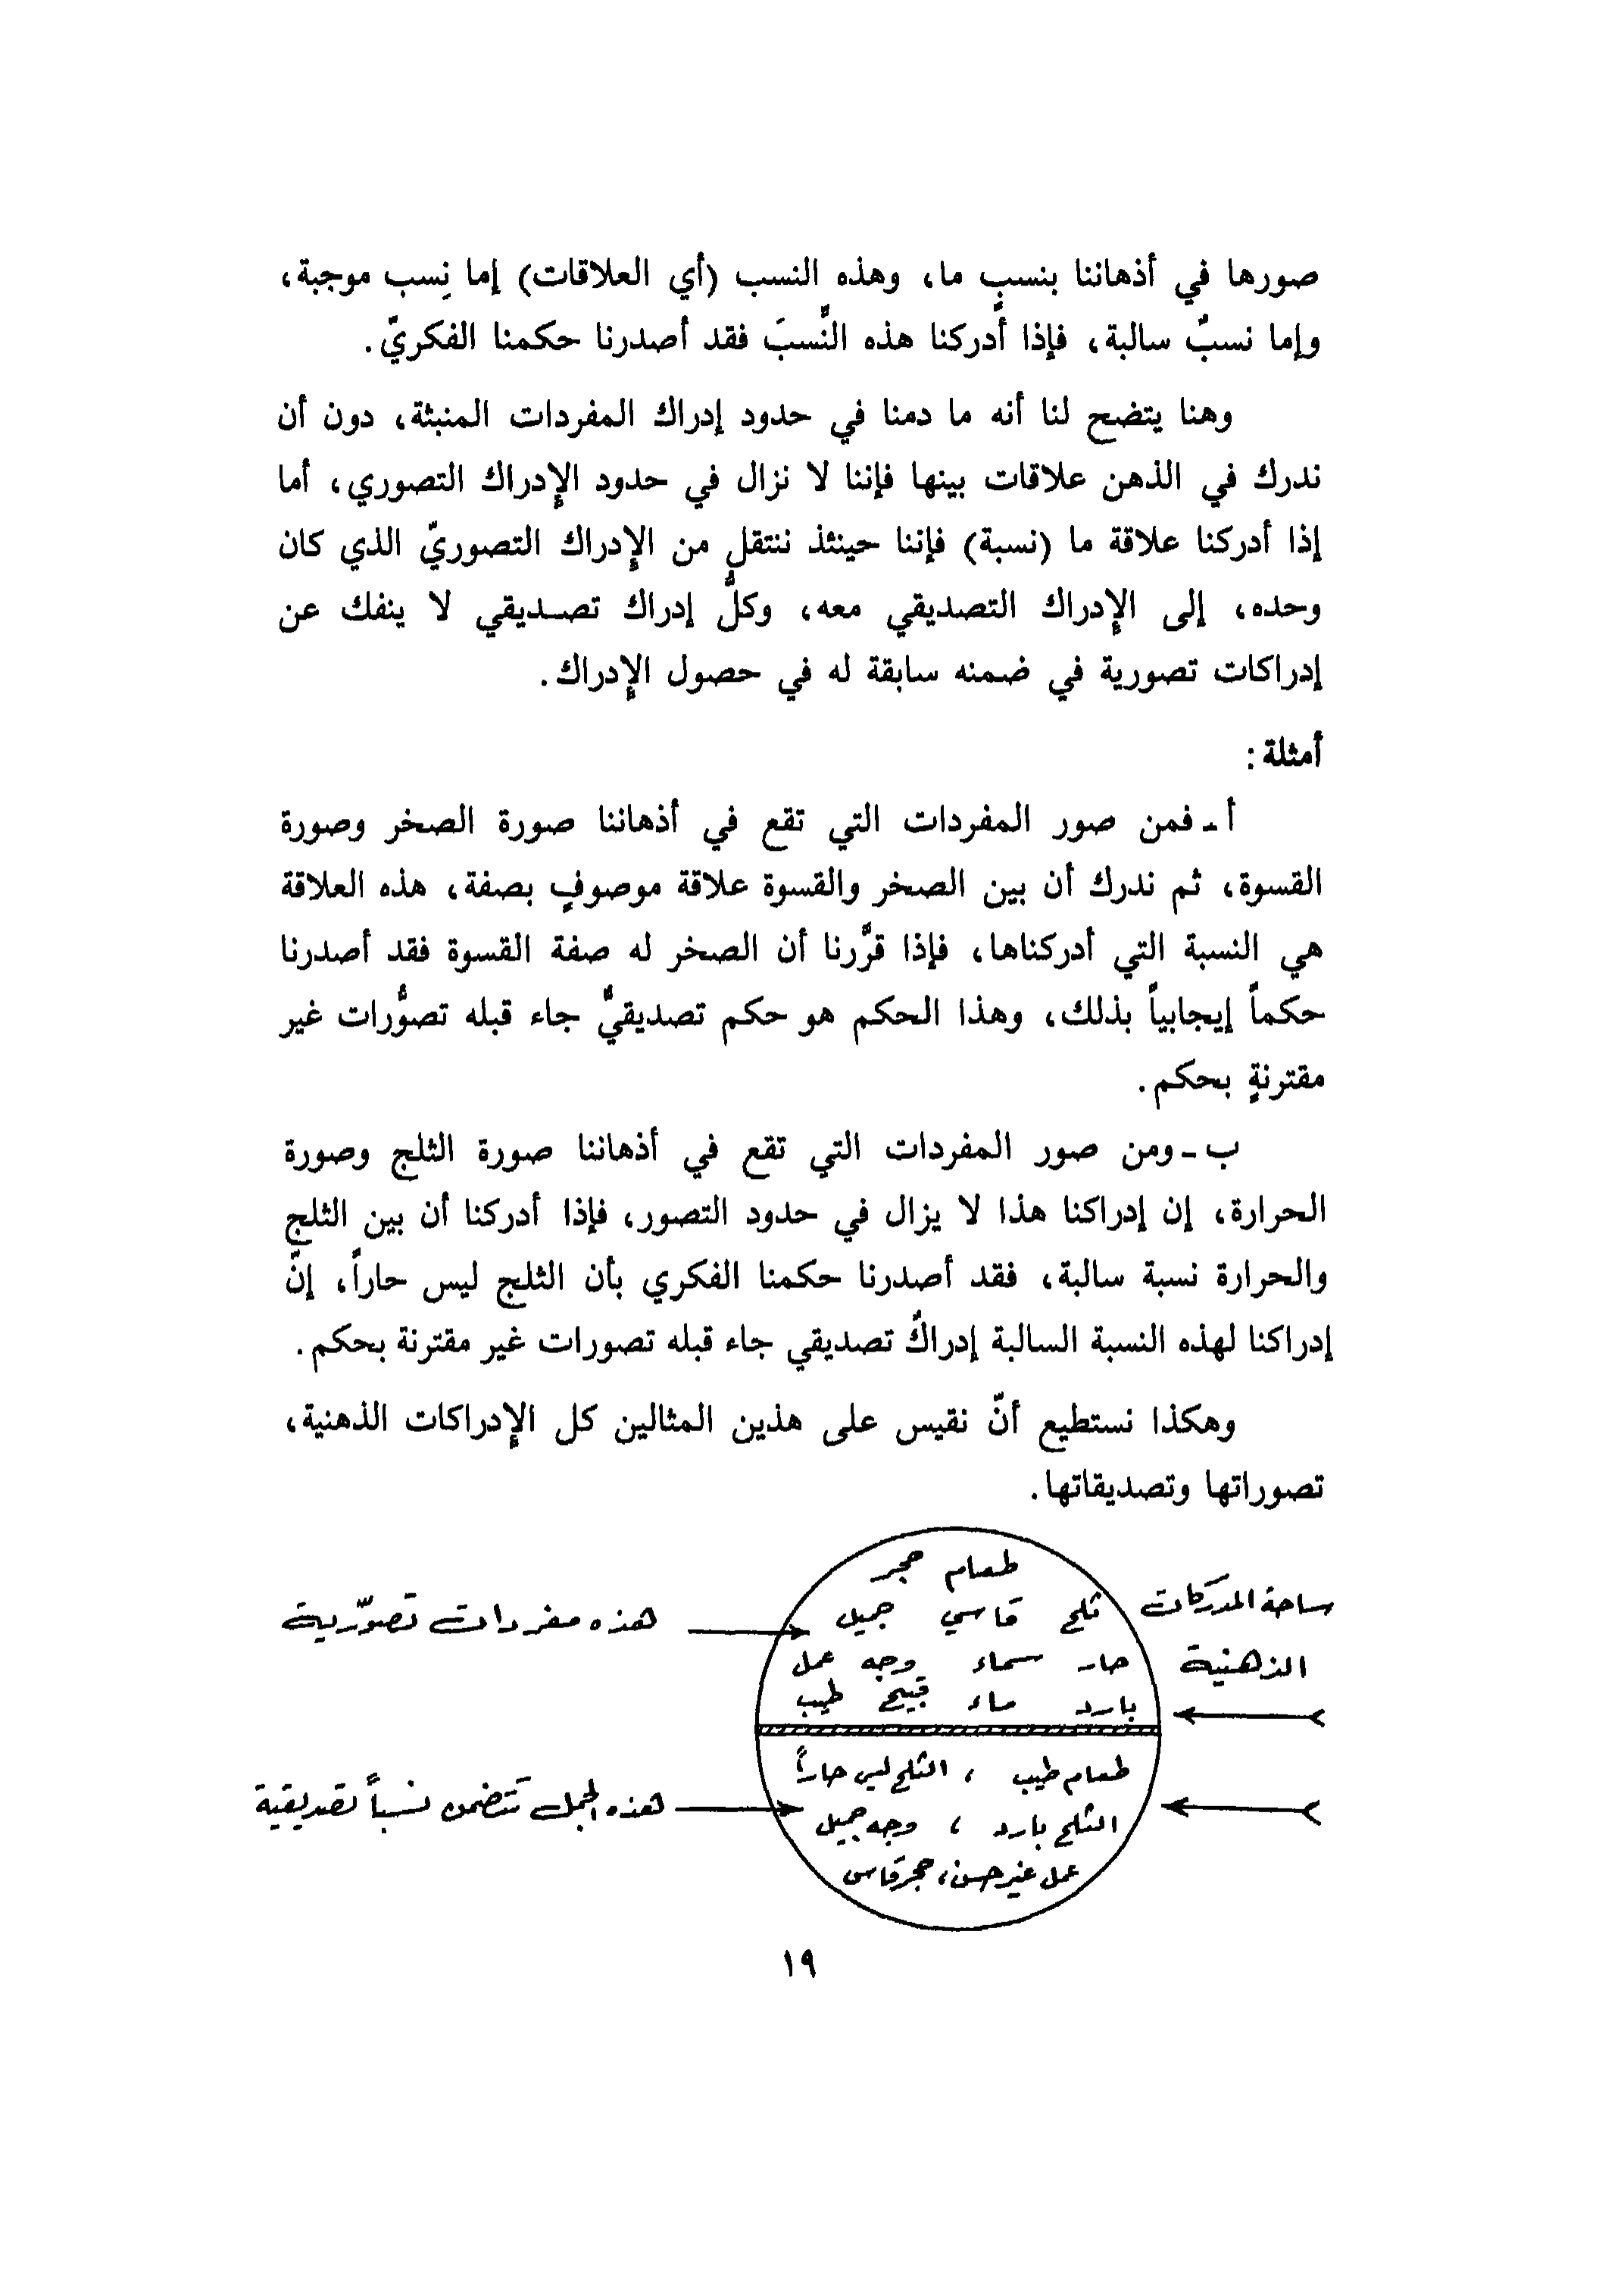 صورها في أذهاننا بنسبٍ ما، وهذه النسب (أي العلاقات) إما نِسب موجبة،
وإما نسبٌ سالبة، فإذا أدركنا هذه النِّسبَ فقد أصدرنا حكمنا الفكريّ.
وهنا يتضح لنا أنه ما دمنا في حدود إدراك المفردات المنبثة، دون أن
ندرك في الذهن علاقات بينها فإننا لا نزال في حدود الإدراك التصوري، أما
إذا أدركنا علاقة ما (نسبة) فإننا حينئذ ننتقل من الإدراك التصوريّ الذي كان
وحده، إلى الإدراك التصديقي معه، وكلُّ إدراك تصديقي لا ينفك عن
إدراكات تصورية في ضمنه سابقة له في حصول الإدراك.
أمثلة:
أ - فمن صور المفردات التي تقع في أذهاننا صورة الصخر وصورة
القسوة، ثم ندرك أن بين الصخر والقسوة علاقة موصوفٍ بصفة، هذه العلاقة
هي النسبة التي أدركناها، فإذا قرَّرنا أن الصخر له صفة القسوة فقد أصدرنا
حكماً إيجابياً بذلك، وهذا الحكم هو حكم تصديقيٌّ جاء قبله تصوُّرات غير
مقترنةٍ بحكم.
ب - ومن صور المفردات التي تقع في أذهاننا صورة الثلج وصورة
الحرارة، إن إدراكنا هذا لا يزال في حدود التصور، فإذا أدركنا أن بين الثلج
والحرارة نسبة سالبة، فقد أصدرنا حكمنا الفكري بأن الثلج ليس حاراً، إنّ
إدراكنا لهذه النسبة السالبة إدراكٌ تصديقي جاء قبله تصورات غير مقترنة بحكم.
وهكذا نستطيع أنّ نقيس على هذين المثالين كل الإدراكات الذهنية،
تصوراتها وتصديقاتها.
ساحة المدركات
الذهنية
طعام حجر
ثلج قاسي جميل
حار سماء وجه عمل
بارد ماء قبيح طيب
هذه مفردات تصوّرية
طعام طيب ، الثلج ليس حاراً
الثلج بارد ، وجه جميل
عمل غير حسن، حجر قاس
هذه الجمل تتضمن نسباً تصديقية
١٩